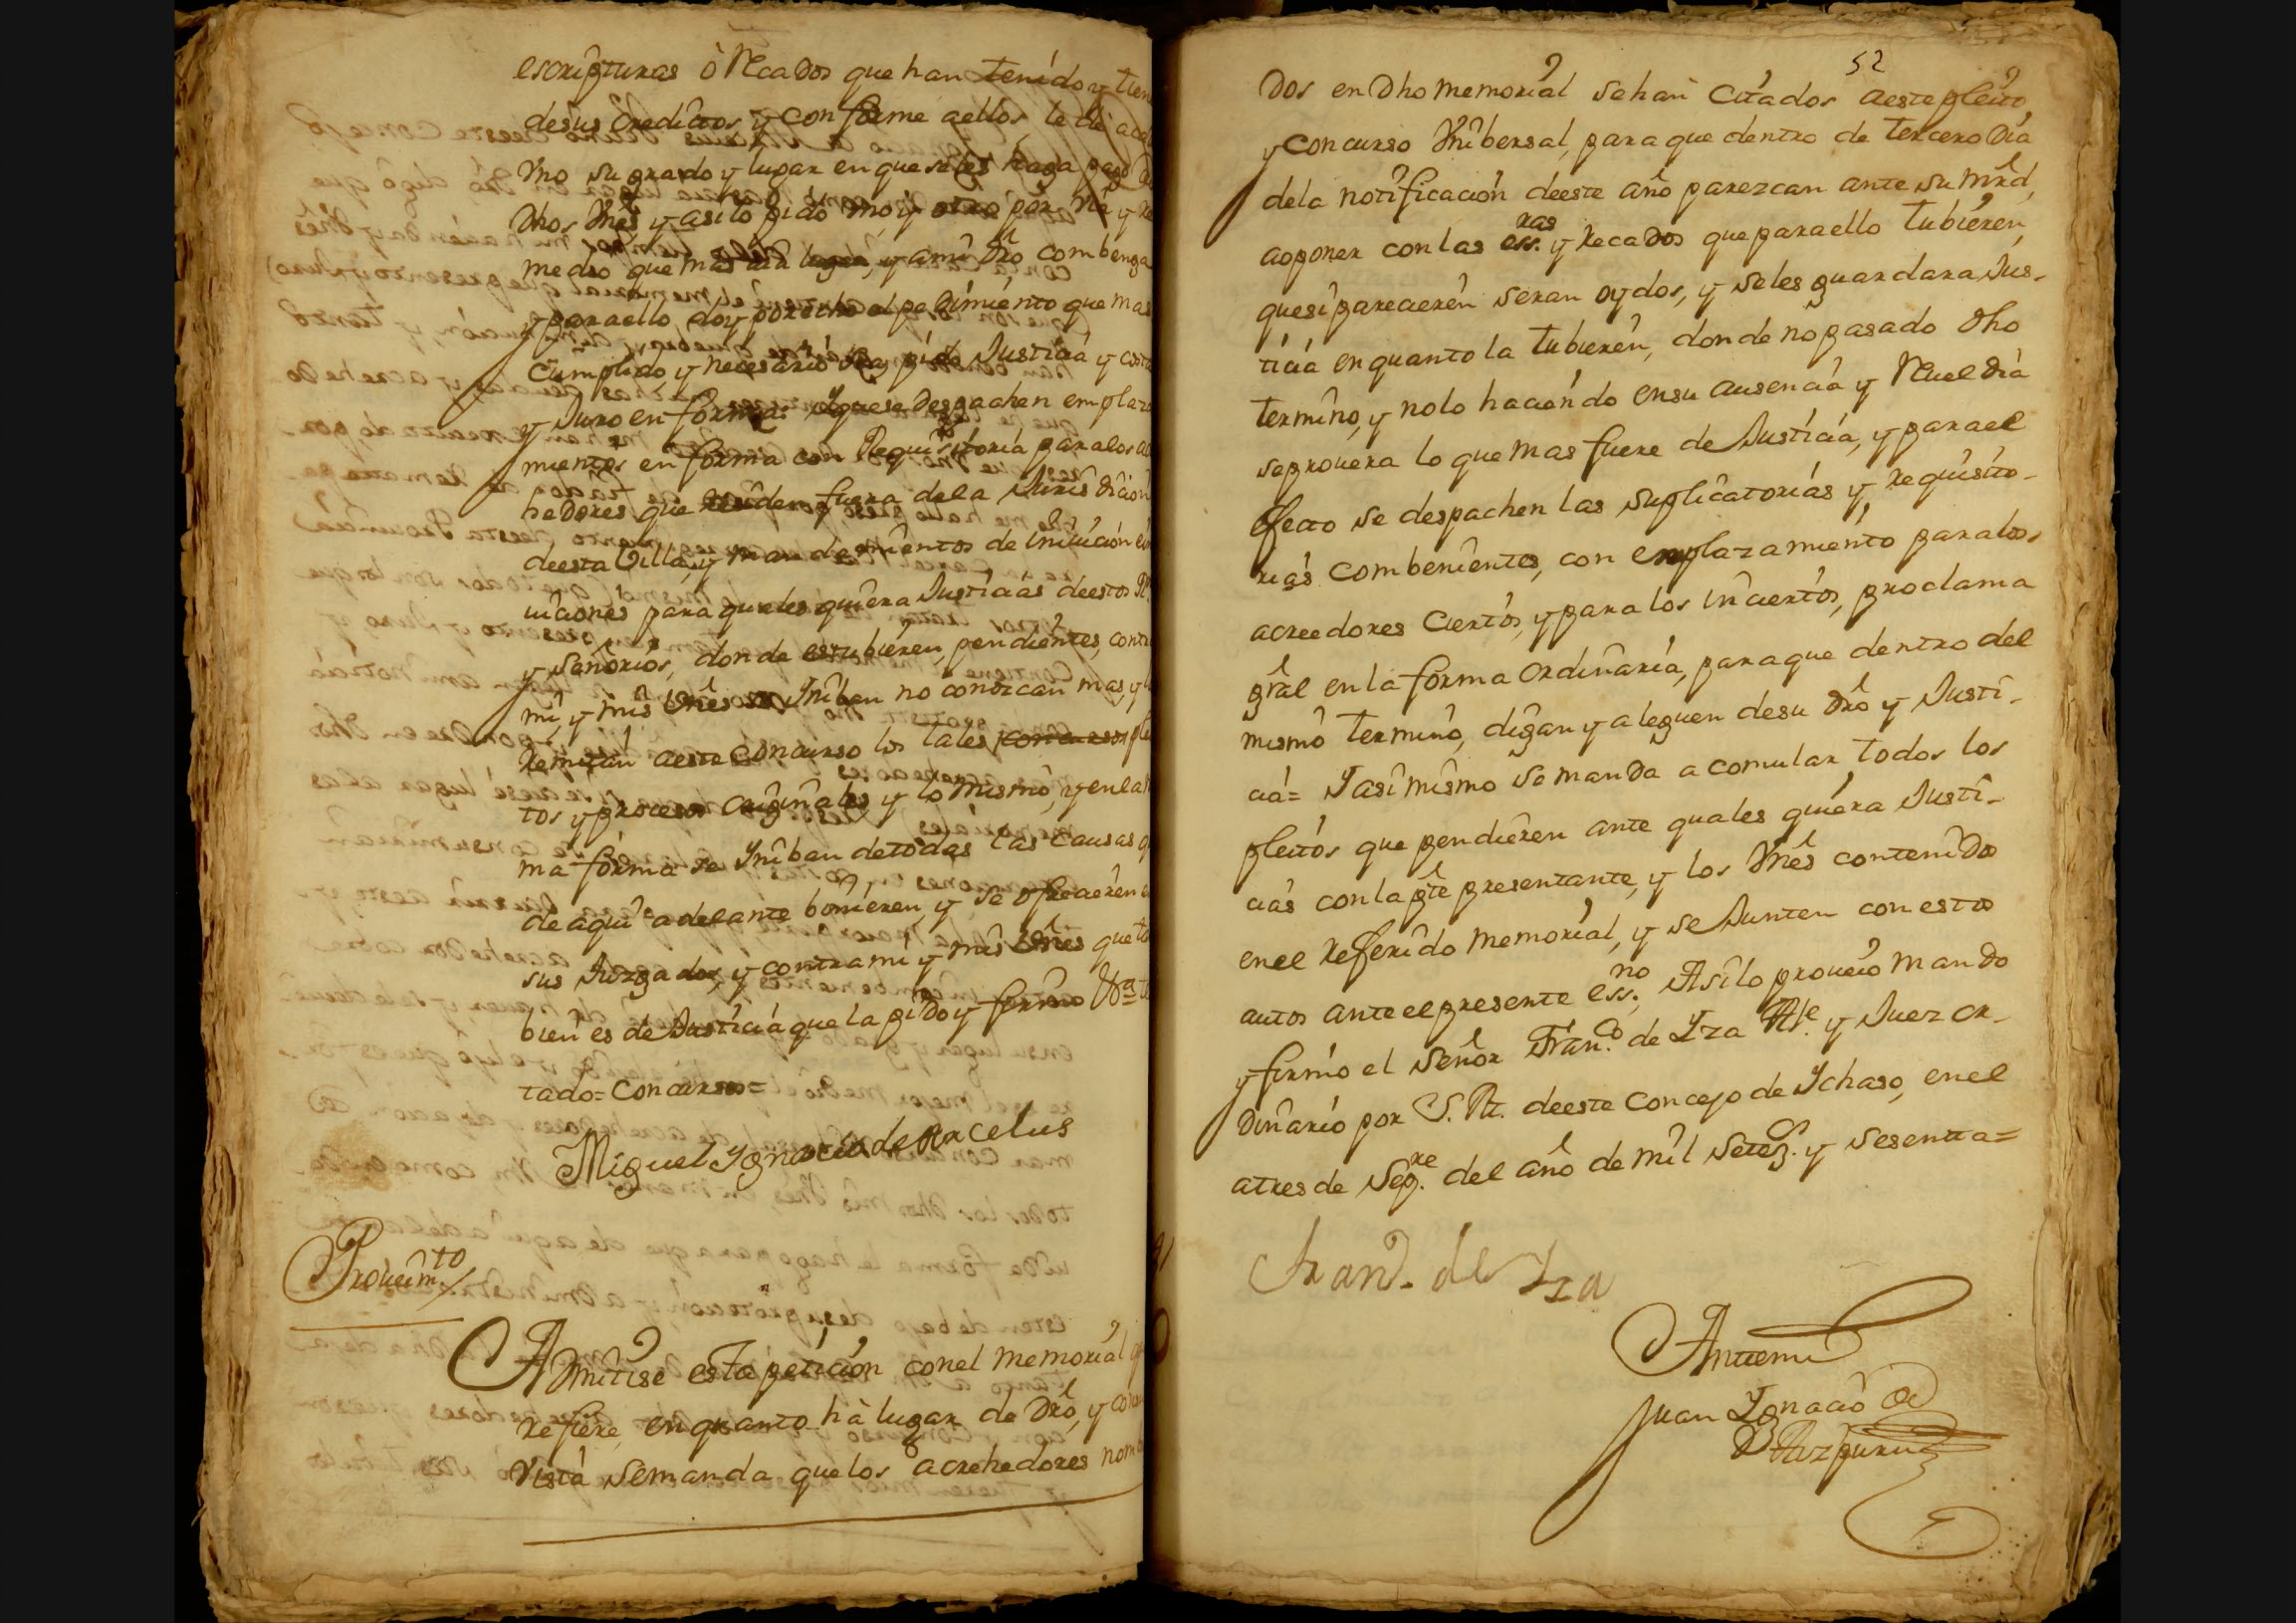 escripturas ò Rcados que han tenido y tien
desus Creditos y conforme aellos le de acada
Vno su grado y lugar en que seles haga pago de
dhos Vnes y asi lo pido Vno y otro por Via y re
medio que mas aia lugar, y ami dro combenga
y para ello doy por echo el pedimiento que mas
cumplido y necesario sea pido Justicia y costas
y Juro en forma: Yquese despachen emplaza
mientos en forma con Requisitoria para los ac
hedores que residen fuera dela Jurisdicion
deesta Villa, y mandamientos de Iniuicion e in
uiciones para quales quiera Justicias deestos Rs.
y señorios, donde estubieren, pendientes, contra
mi, y mis Vnes se Yniban no conozcan mas, y
Remitan aeste concurso los tales concursos plei
tos y procesos originales y lo mismo, y en la mis
ma forma se Yniban detodas las causas q
de aqui adelante bonieren, y se ofrecieren en
sus Juzgados, y contra mi y mis Vnes que ta
bien es de Justicia que la pido y firmo Va te
tado = concursos =
Miguel Ygnacio de Arcelus
Proueim.to
Admitise esta peticion conel memorial q
refiere, enquanto hà lugar de dro, y con su
vista Semanda quelos acrehedores nomb
52
dos en dho memorial sehan Citados aeste pleito,
y concurso Vnibersal, para que dentro de tercero dia
dela notificacion deeste año parezcan ante su mrd,
aoponer con las ess.ras y recados que para ello tubieren,
quesi parecieren seran oydos, y seles guardara Jus-
ticia en quanto la tubieren, donde no pasado dho
termino, y nolo haciendo ensu ausencia y Rueldia
seprouera lo que mas fuere de Justicia, y para el
efecto se despachen las suplicatorias y requisito-
rias combenientes, con emplazamiento para los
acreedores ciertos, y para los inciertos, proclama
gral en la forma ordinaria, para que dentro del
mismo termino, digan y aleguen desu dro y Justi-
cia = Yasimismo se manda acomular todos los
pleitos que pendieren ante quales quiera Justi-
cias con la pte presentante, y los Vnes contenidos
enel referido memorial, y se Junten con estos
autos ante el presente ess.no, Asilo proueio mando
y firmo el señor Fran.co de Yza Alle. y Juez or-
dinario por S. M. deeste concejo de Ychaso, en el
atres de Sep.re del año de mil Seteζ. y Sesenta =
Fran.co de Yza
Antemi
Juan Ygnacio de
Aizpuru